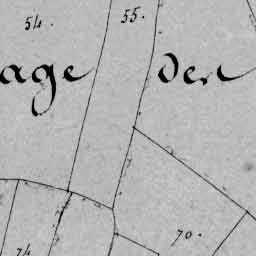 54. 55.
age den
70.
74